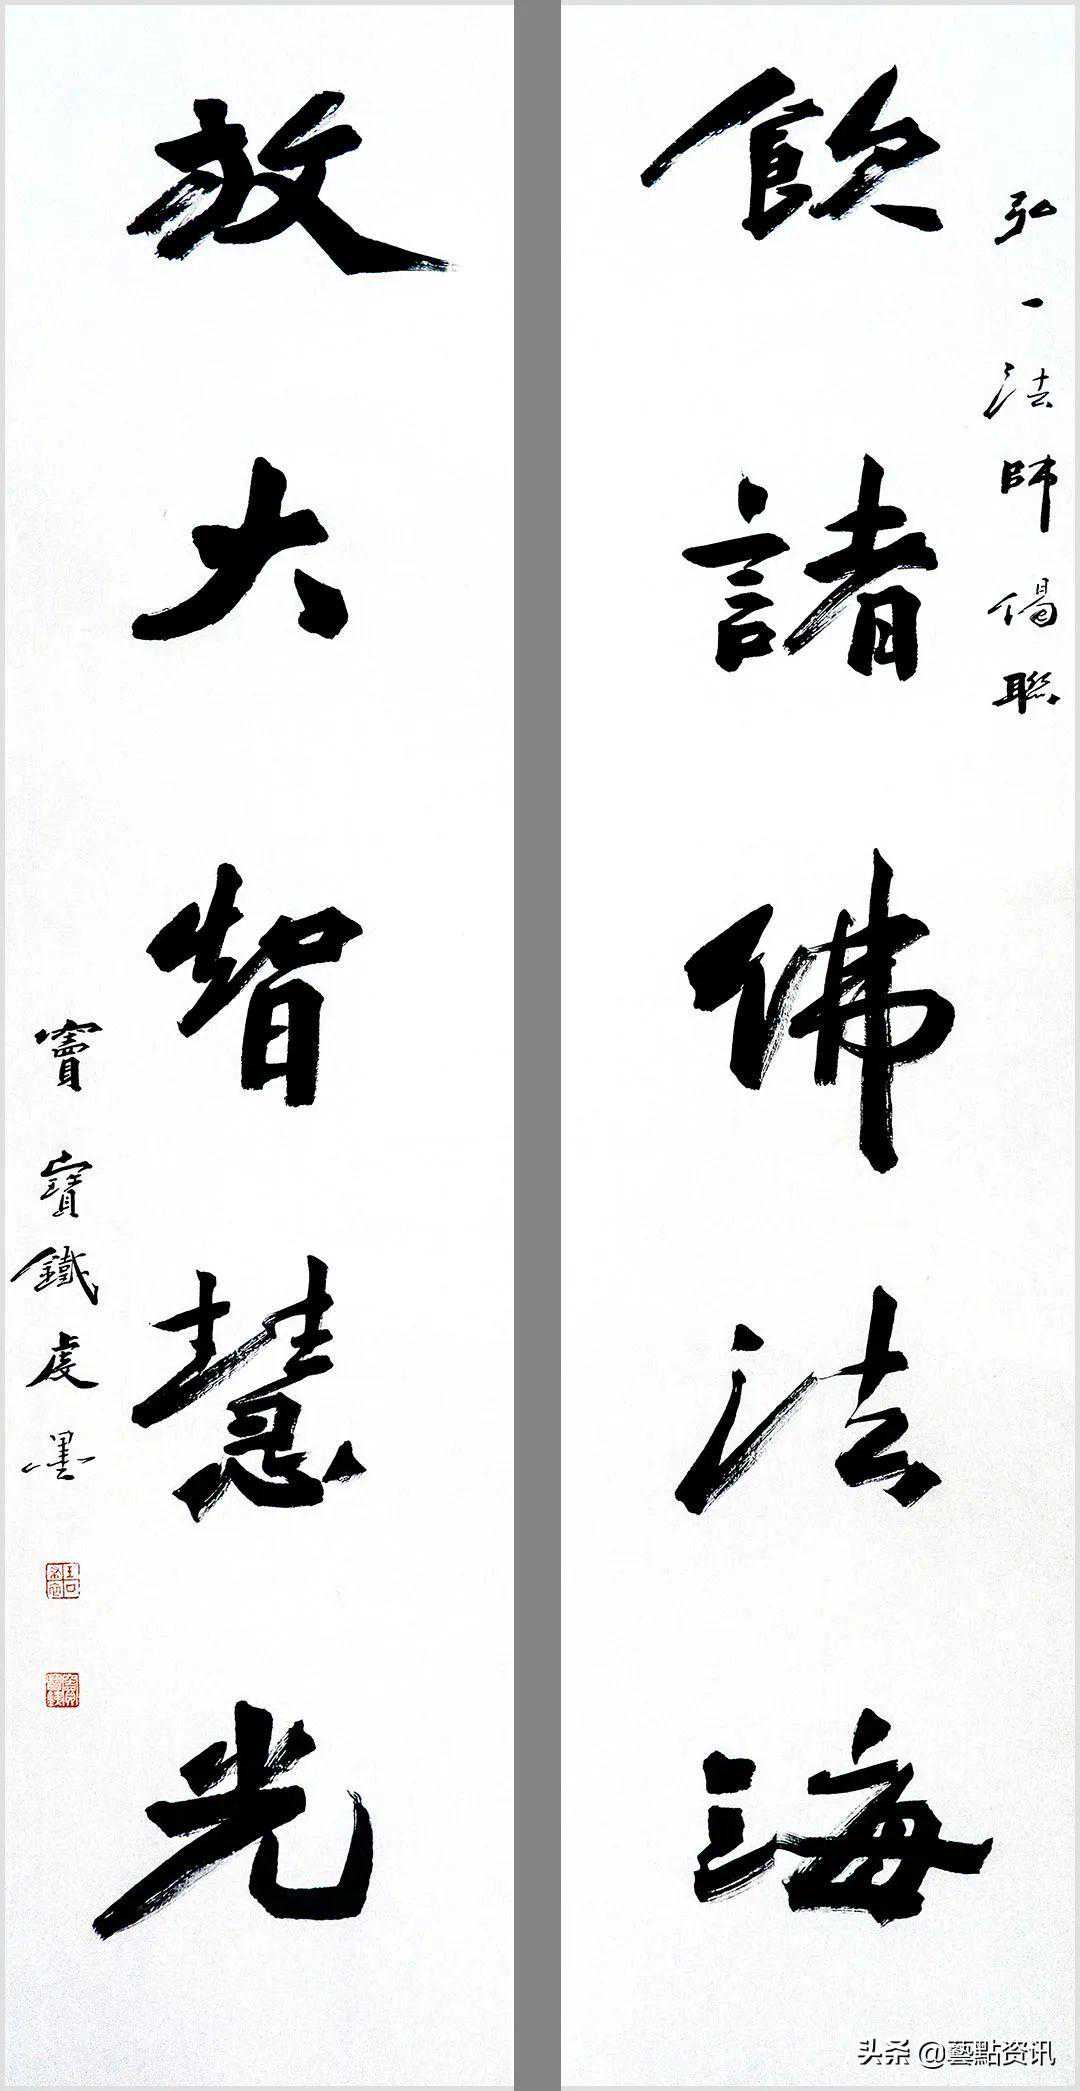 弘一法師偈聯
飲諸佛法海
放大智慧光
竇寶鐵虔墨
头条 @藝點资讯